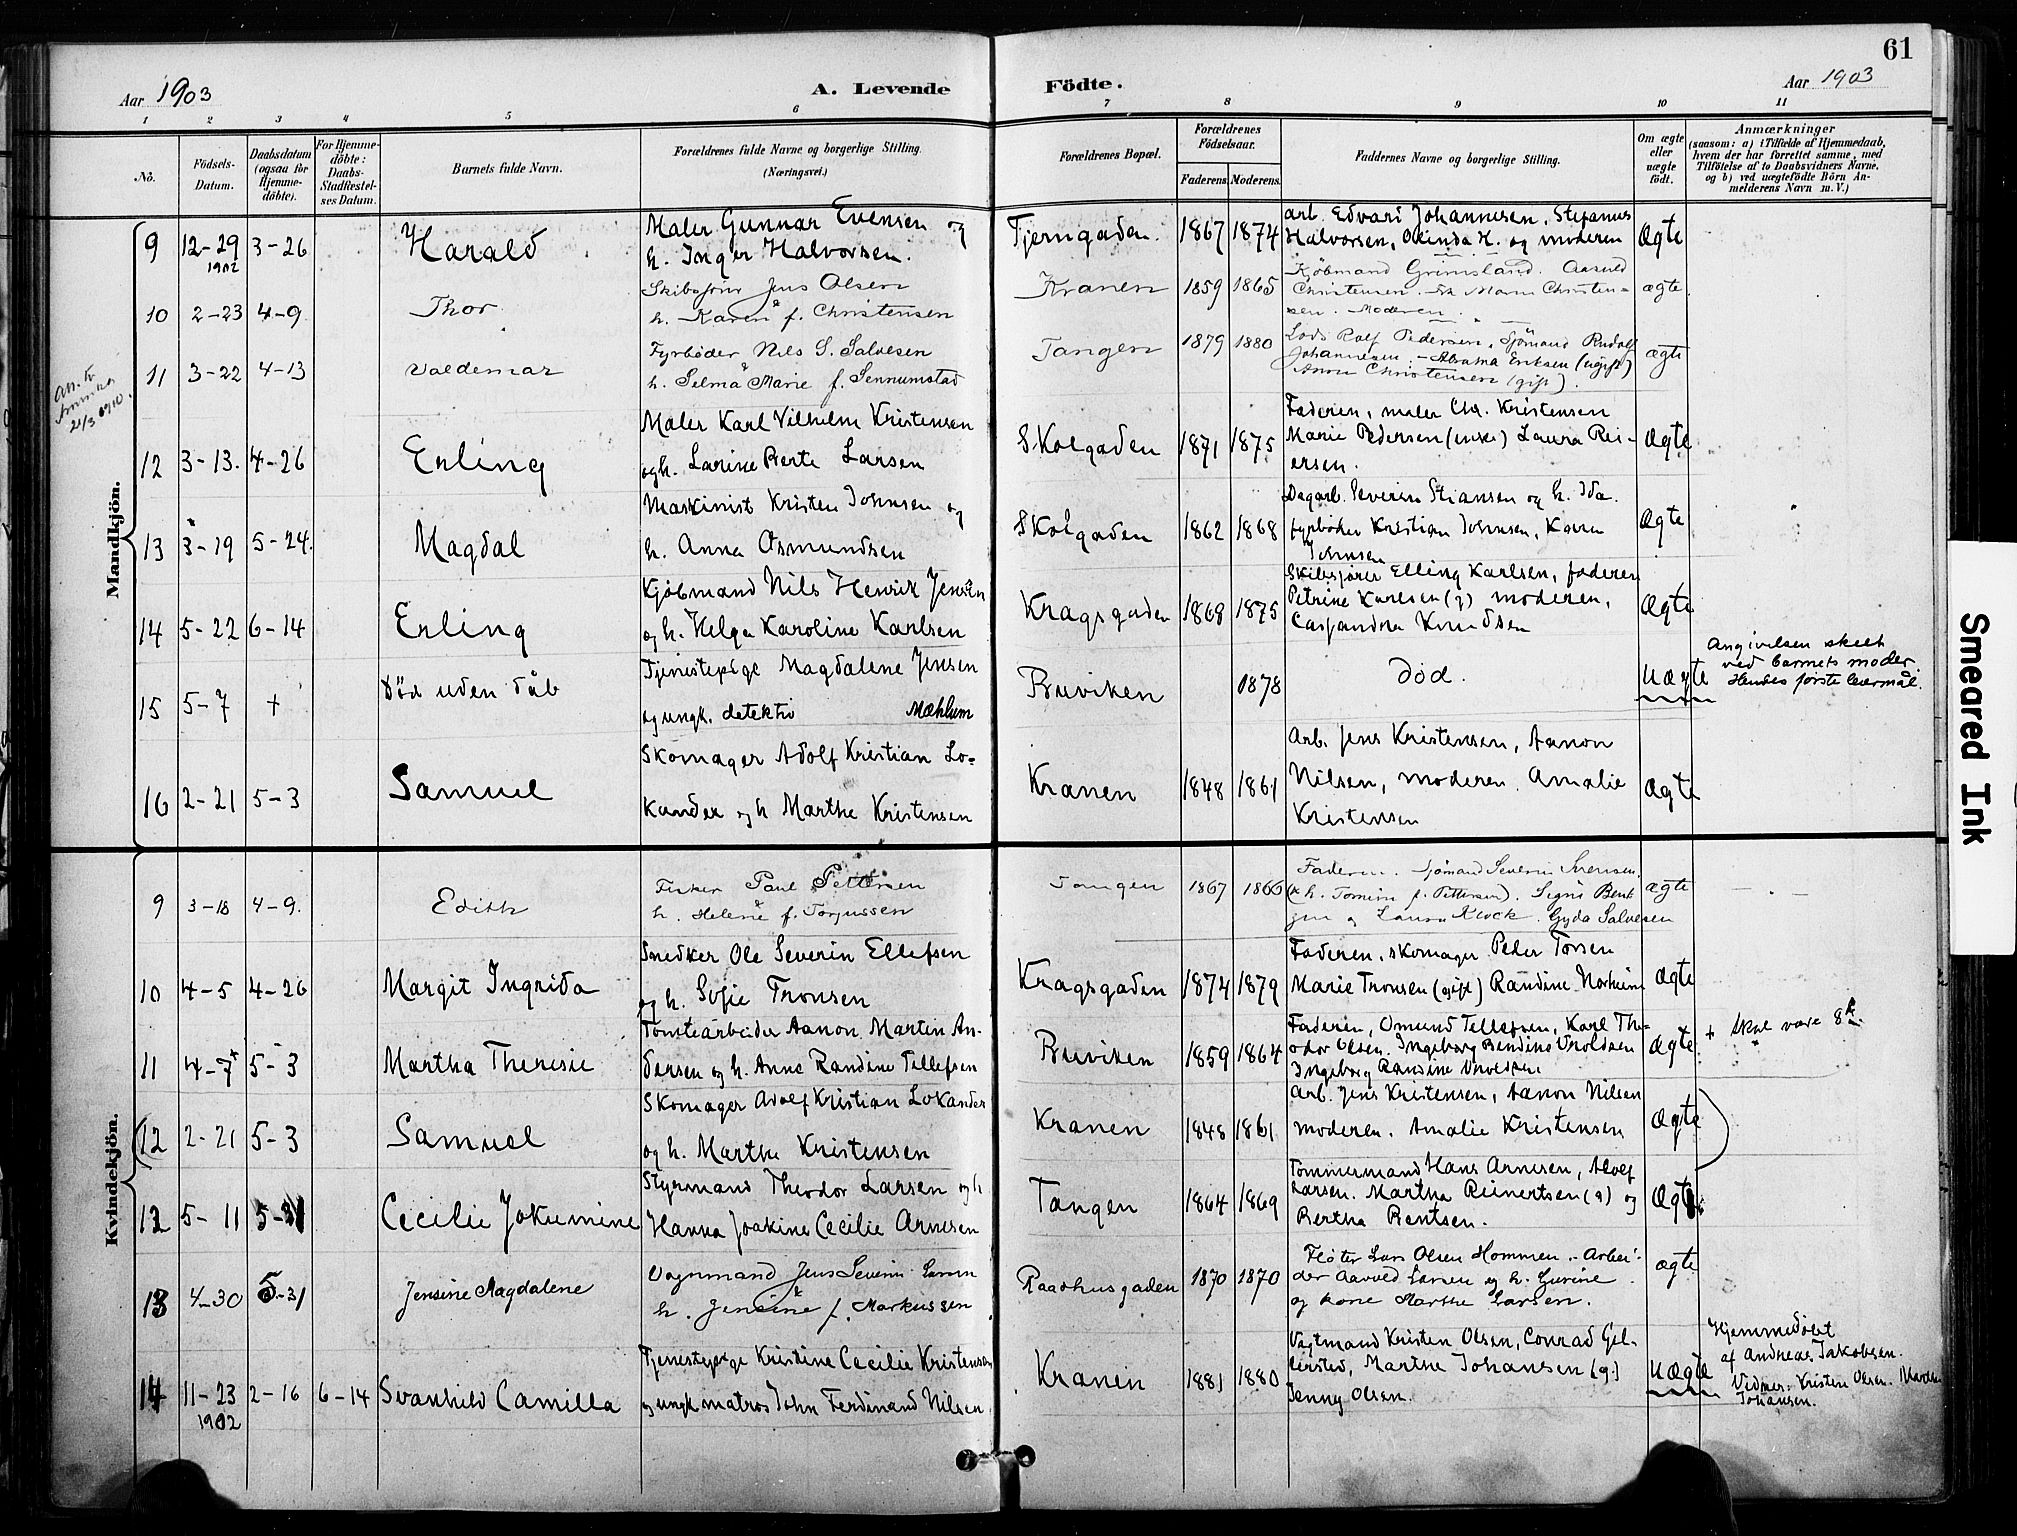 61
Aar 1903
A. Levende Födte.
Aar 1903
1 2 3 4 5 6 7 8 9 10 11
No.
Födsels-Datum.
Daabsdatum (ogsaa for Hjemme-döbte).
For Hjemme-döbte: Daabs-Stadfæstel-ses Datum.
Barnets fulde Navn.
Forældrenes fulde Navne og borgerlige Stilling.
(Næringsvei.)
Forældrenes Bopæl.
Forældrenes Födselsaar.
Faderens. Moderens.
Faddernes Navne og borgerlige Stilling.
Om ægte eller uægte födt.
Anmærkninger
(saasom: a) i Tilfælde af Hjemmedaab,
hvem der har forrettet samme, med
Tilföielse af to Daabsvidners Navne,
og b) ved uægtefödte Börn An-
melderens Navn m. V.)
Mandkjön.
9 12-29 1902 3-26 Harald
Maler Gunnar Evensen og
h. Inger Halvorsen.
Tjerngaden. 1867 1874
arb. Edvard Johannesen, Stefanus
Halvorsen, H. og moderen
Ægte
10 2-23 4-9 Thor
Skibsfører Jens Olsen
h. Karen f. Christensen
Kranen 1859 1865
Kjøbmand Grimsland. Aasuld
Christensen. Maren Christen-
sen. Moderen.
ægte
11 3-22 4-13 Valdemar
Fyrbøder Nils S. Salvesen
h. Selma Marie f. Sennumstad
Tangen 1879 1880
Lods Rolf Pedersen, Sjömand Rudolf
Johannesen. Abrama Eriksen (ugift)
Anna Christensen (gift).
ægte
21/3 1910.
12 3-13. 4-26 Erling
Maler Karl Vilhelm Kristensen
og h. Larine Berte Larsen
Skolgaden 1871 1875
Faderen, maler Chr. Kristensen
Marie Pedersen (enke) Laura Rei-
ersen.
Ægte
13 3-19 5-24. Magdal
Maskinist Kristen Johnsen og
h. Anna Osmundsen
Skolgaden 1862 1868
Dagarb. Severin Stiansen og h. Ida.
fyrbøder Kristian Johnsen, Karen
Johnsen
Ægte
14 5-22 6-14 Erling
Kjøbmand Nils Henrik Jensen
og h. Helga Karoline Karlsen
Kragsgaden 1868 1875
Skibsfører Elling Karlsen, faderen
Petrine Karlsen (g) moderen,
Cassandra Knudsen
Ægte
15 5-7 + Død uden dåb
Tjenestepige Magdalene Jensen
og ungk. detektiv Mæhlum
Buviken 1878
død.
Uægte
Angivelsen skeet
ved barnets moder.
Hendes første leiermål.
16 2-21 5-3 Samuel
Skomager Adolf Kristian Lo-
kander og h Marthe Kristensen
Kranen 1848 1861
Arb. Jens Kristensen, Aanon
Nilsen, moderen. Amalie
Kristensen
Ægte
Kvindekjön.
9 3-18 4-9. Edith
Fisker Paul Pettersen
h. Helene f. Torjussen
Tangen 1867 1866
Faderen. Sjömand Severin Svensen
(& h. Tomine f. Pettersen). Signe Bent
og Laura Klock. Gyda Salvesen
ægte
10 4-5 4-26 Margit Ingrida
Snedker Ole Severin Ellefsen
og h. Sofie Tronsen
Kragsgaden 1874 1879
Faderen, skomager Peder Torsen
Marie Tronsen (gift) Randine Norheim
Ægte
11 4-7+ 5-3 Martha Theresie
Tomtearbeider Aanon Martin An-
dersen og h. Anne Randine Tellefsen
Buviken 1859 1864
Faderen, Omund Tellefsen, Karl The-
odor Olsen. Ingeborg Bendine Uvoldsen
Ingeborg Randine Uvoldsen
Ægte
+ Skal være 8de.
(12 2-21 5-3 Samuel
Skomager Adolf Kristian Lokander
og h. Marthe Kristensen
Kranen 1848 1861
Arb. Jens Kristensen, Aanon Nilsen
moderen. Amalie Kristensen
Ægte )
12 5-11 5-31 Cecilie Jokumine
Styrmand Theodor Larsen og h
Hanna Joakine Cecilie Arnesen
Tangen 1864 1869
Tømmermand Hans Arnesen, Adolf
Larsen. Martha Reinertsen (g) og
Bertha Bentsen.
Ægte
13 4-30 5-31 Jensine Magdalene
Vognmand Jens Severin Larsen
h. Jensine f. Markussen
Raadhusgaden 1870 1870
Fløter Lars Olsen Hommen. - Arbei-
der Aavold Larsen og h. Gurine
og kone Marthe Larsen.
ægte
14 11-23 1902 2-16 6-14 Svanhild Camilla
Tjenestepige Kristine Cecilie Kristensen
og ungk matros John Ferdinand Nilsen
Kranen 1881 1880
Vagtmand Kristen Olsen, Conrad Gel-
lersted, Marthe Johansen (g.)
Jenny Olsen.
Uægte
Hjemmedøbt
af Andreas Jakobsen.
Vidner: Kristen Olsen. Marthe
Johansen.
Smeared Ink